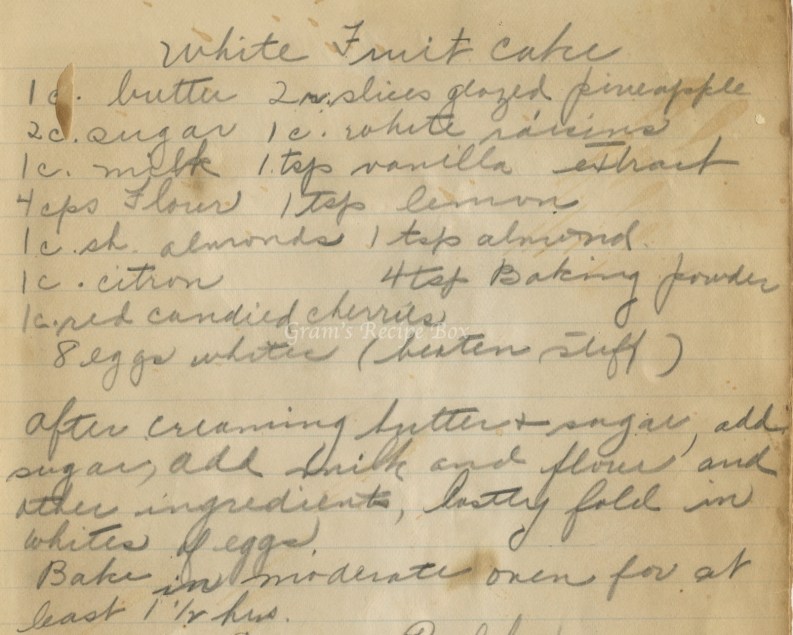 White Fruit Cake
1 c. butter 2 slices glazed pineapple
2 c. sugar 1 c. white raisins
1 c. milk 1 tsp vanilla extract
4 cps Flour 1 tsp lemon
1 c. sh. almonds 1 tsp almond.
1 c. citron 4 tsp Baking powder
1 c. red candied cherries
Gram's Recipe Box
8 eggs whites (beaten stiff)
After creaming butter + sugar, add
sugar, add milk and flour and
other ingredients, lastly fold in
whites of eggs
Bake in moderate oven for at
least 1 1/2 hrs.